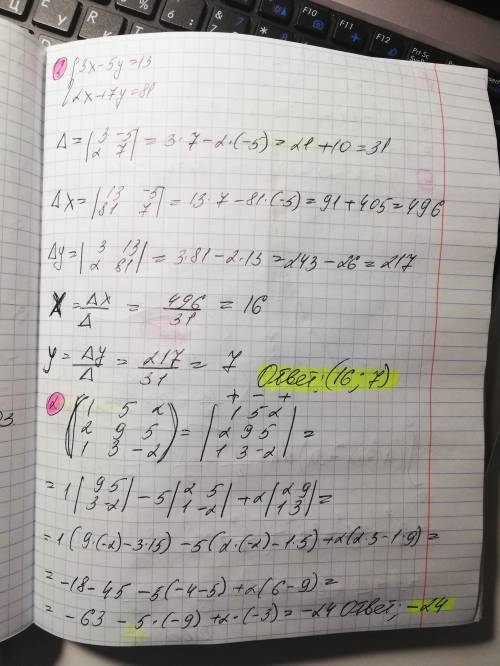 1) {3x-5y=13
{2x+7y=81
Δ=|3 -5; 2 7| = 3·7-2·(-5)=21+10=31
Δx=|13 -5; 81 7| = 13·7-81·(-5)=91+405=496
Δy=|3 13; 2 81| = 3·81-2·13=243-26=217
X = Δx/Δ = 496/31 = 16
y = Δy/Δ = 217/31 = 7 Ответ: (16; 7)
+ - +
2) (1 5 2; 2 9 5; 1 3 -2) = |1 5 2; 2 9 5; 1 3 -2| =
=1|9 5; 3 -2| -5|2 5; 1 -2| +2|2 9; 1 3|=
=1(9·(-2)-3·15) -5(2·(-2)-1·5)+2(2·3-1·9)=
=-18-45 -5(-4-5)+2(6-9)=
= -63 -5·(-9)+2·(-3)=-24 Ответ: -24
F10
F11
F12